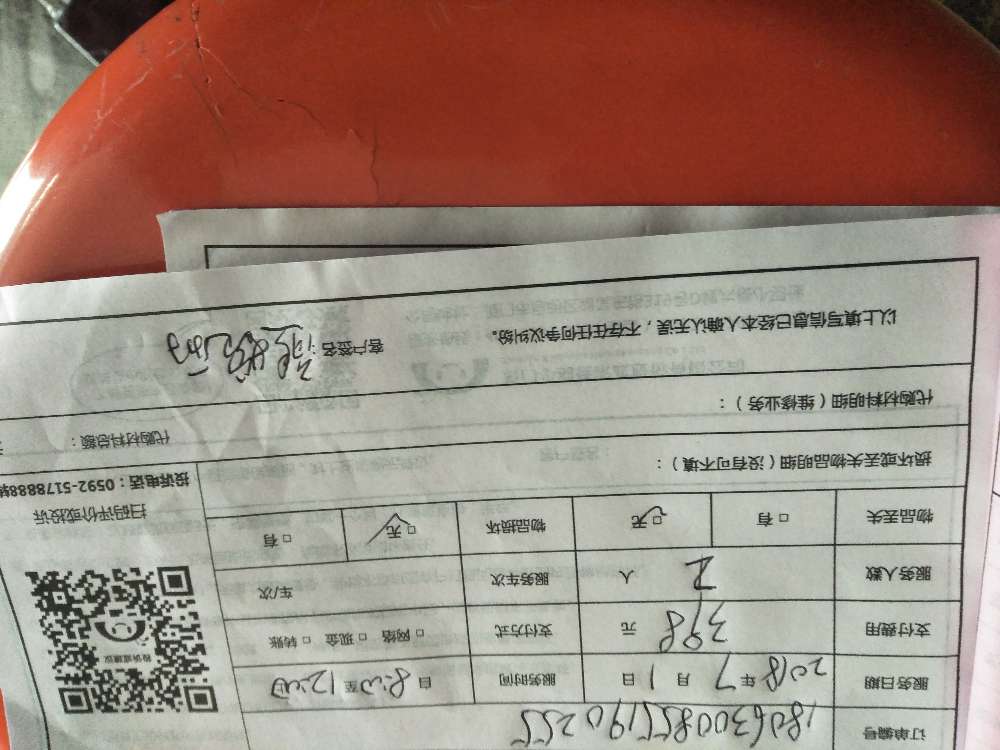 订单编号 180630085119025
服务日期 2018年7月1日 服务时间 自8:00至12:00
支付费用 398 元 支付方式 □网络 □现金 □转账
服务人数 2 人 服务车次 车/次
物品丢失 □有 □无 物品损坏 □无 □有
损坏或丢失物品明细（没有可不填）：
代购材料明细（维修业务）： 代购材料总额：
以上填写信息已经本人确认无误，不存在任何争议纠纷。 客户签名
扫码评价或投诉
投诉电话：0592-5178888转